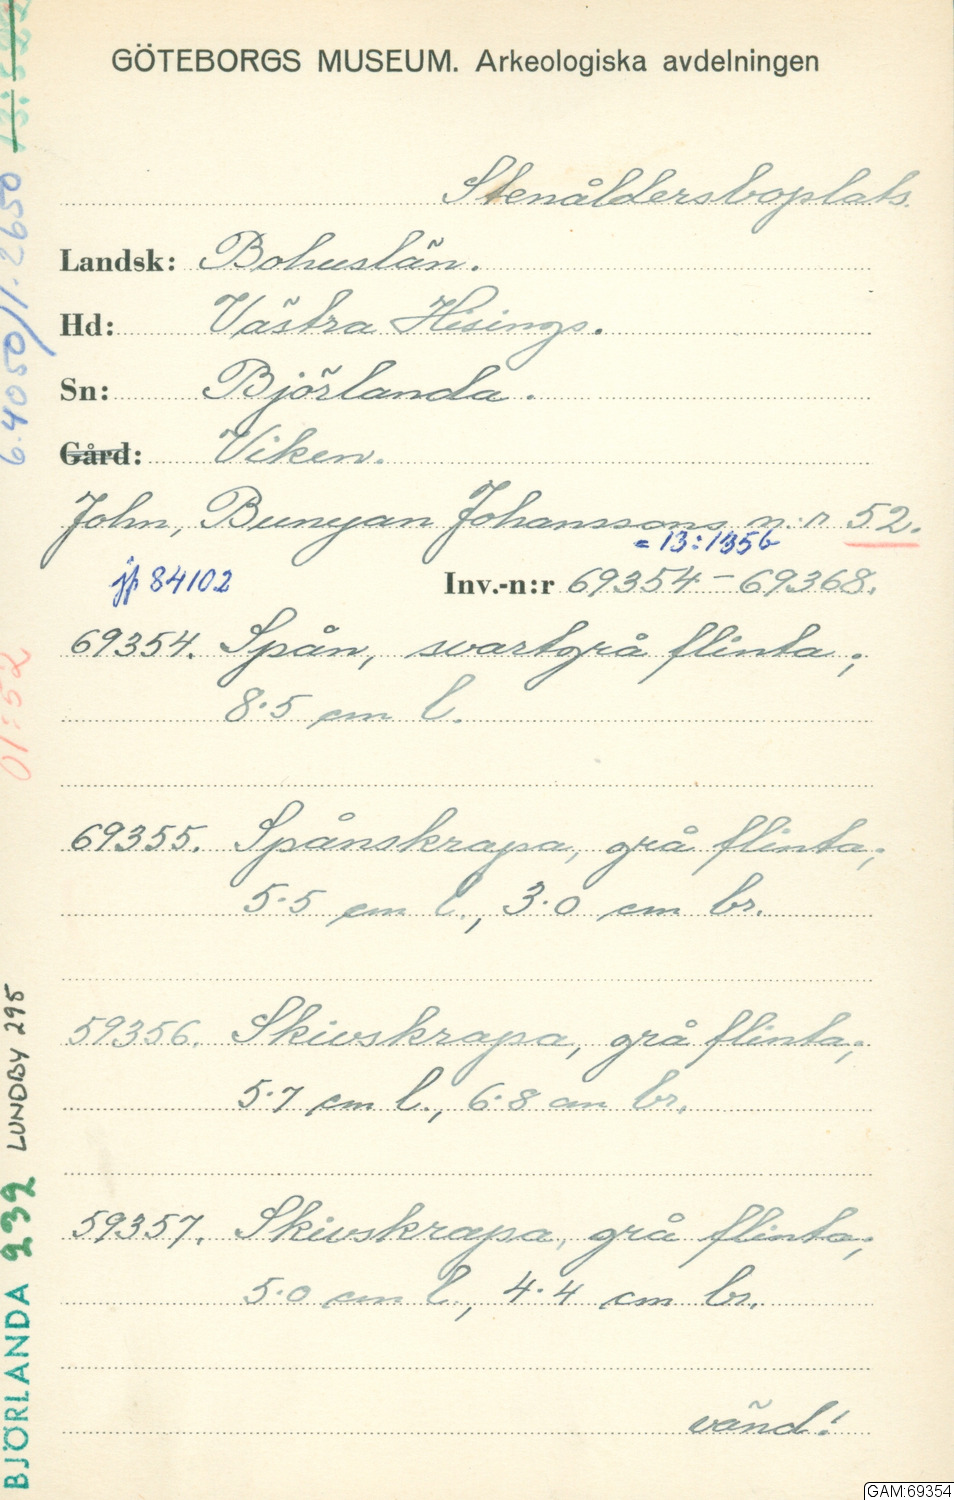 GÖTEBORGS MUSEUM. Arkeologiska avdelningen
Stenåldersboplats.
Landsk: Bohuslän.
Hd: Västra Hisings.
Sn: Björlanda.
Gård: Viken.
John, Bunyan Johanssons n:r 52.
= 13:1356
jf 84102
Inv.-n:r 69354-69368.
69354. Spån, svartgrå flinta;
8.5 cm l.
69355. Spånskrapa, grå flinta;
5.5 cm l., 3.0 cm br.
59356. Skivskrapa, grå flinta;
5.7 cm l., 6.8 cm br.
59357. Skivskrapa, grå flinta;
5.0 cm l., 4.4 cm br.
vänd!
6.4050/1.2650
01:52
BJÖRLANDA 232 LUNDBY 295
GAM:69354